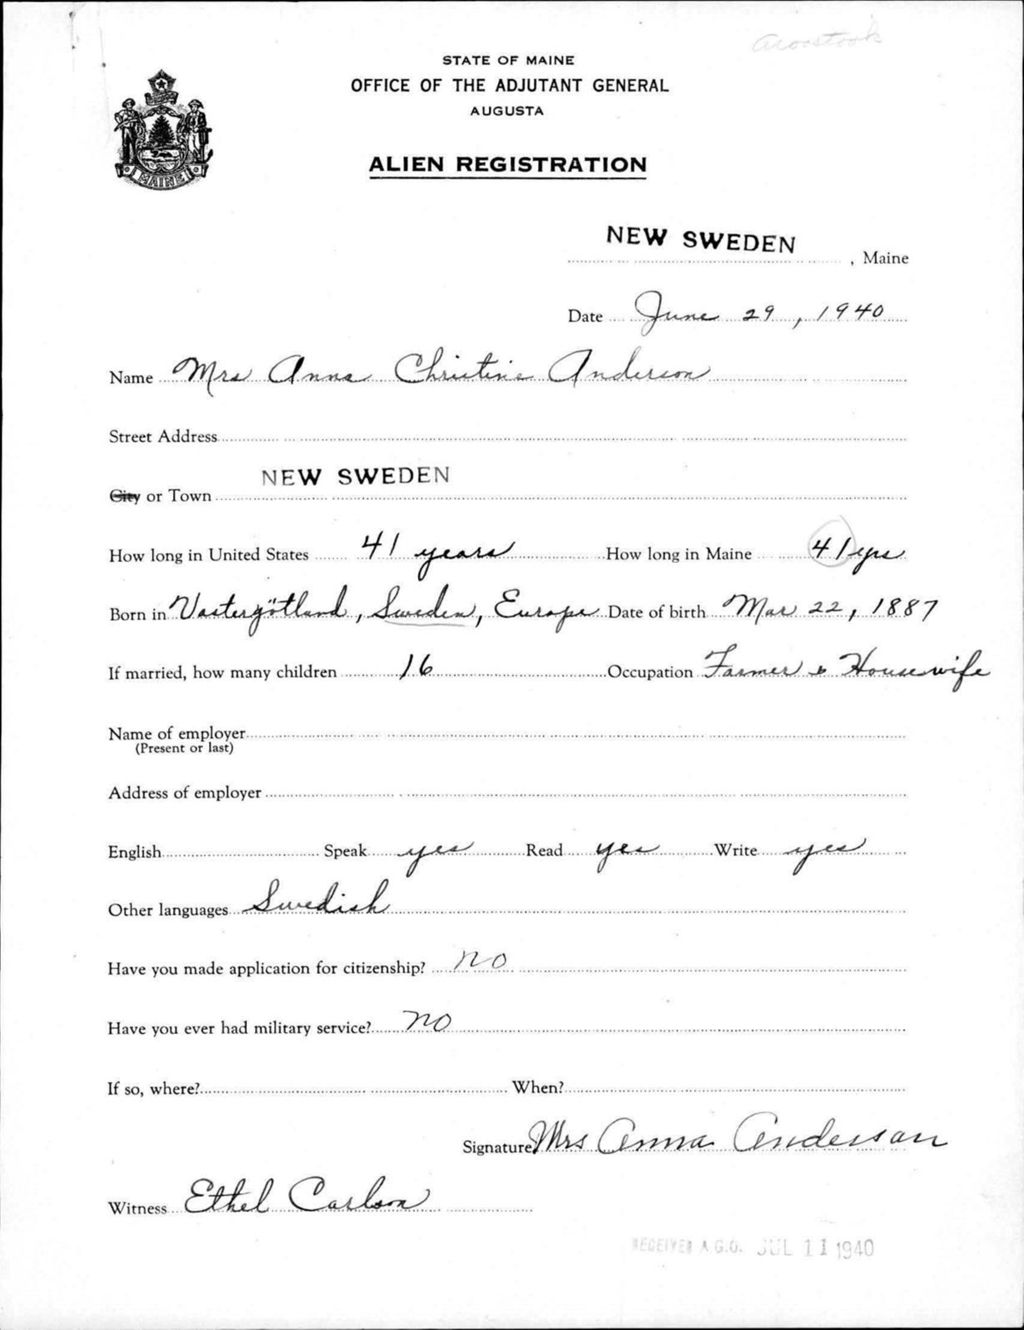 Aroostook
STATE OF MAINE
OFFICE OF THE ADJUTANT GENERAL
AUGUSTA
ALIEN REGISTRATION
MAINE
NEW SWEDEN, Maine
Date June 29, 1940
Name Mrs Anna Christine Anderson
Street Address
City or Town NEW SWEDEN
How long in United States 41 years How long in Maine 41 yrs
Born in Vastergötland, Sweden, Europe Date of birth Mar 22, 1887
If married, how many children 16 Occupation Farmer & Housewife
Name of employer
(Present or last)
Address of employer
English Speak yes Read yes Write yes
Other languages Swedish
Have you made application for citizenship? no
Have you ever had military service? no
If so, where? When?
Signature Mrs Anna Anderson
Witness Ethel Carlson
RECEIVED A.G.O. JUL 11 1940